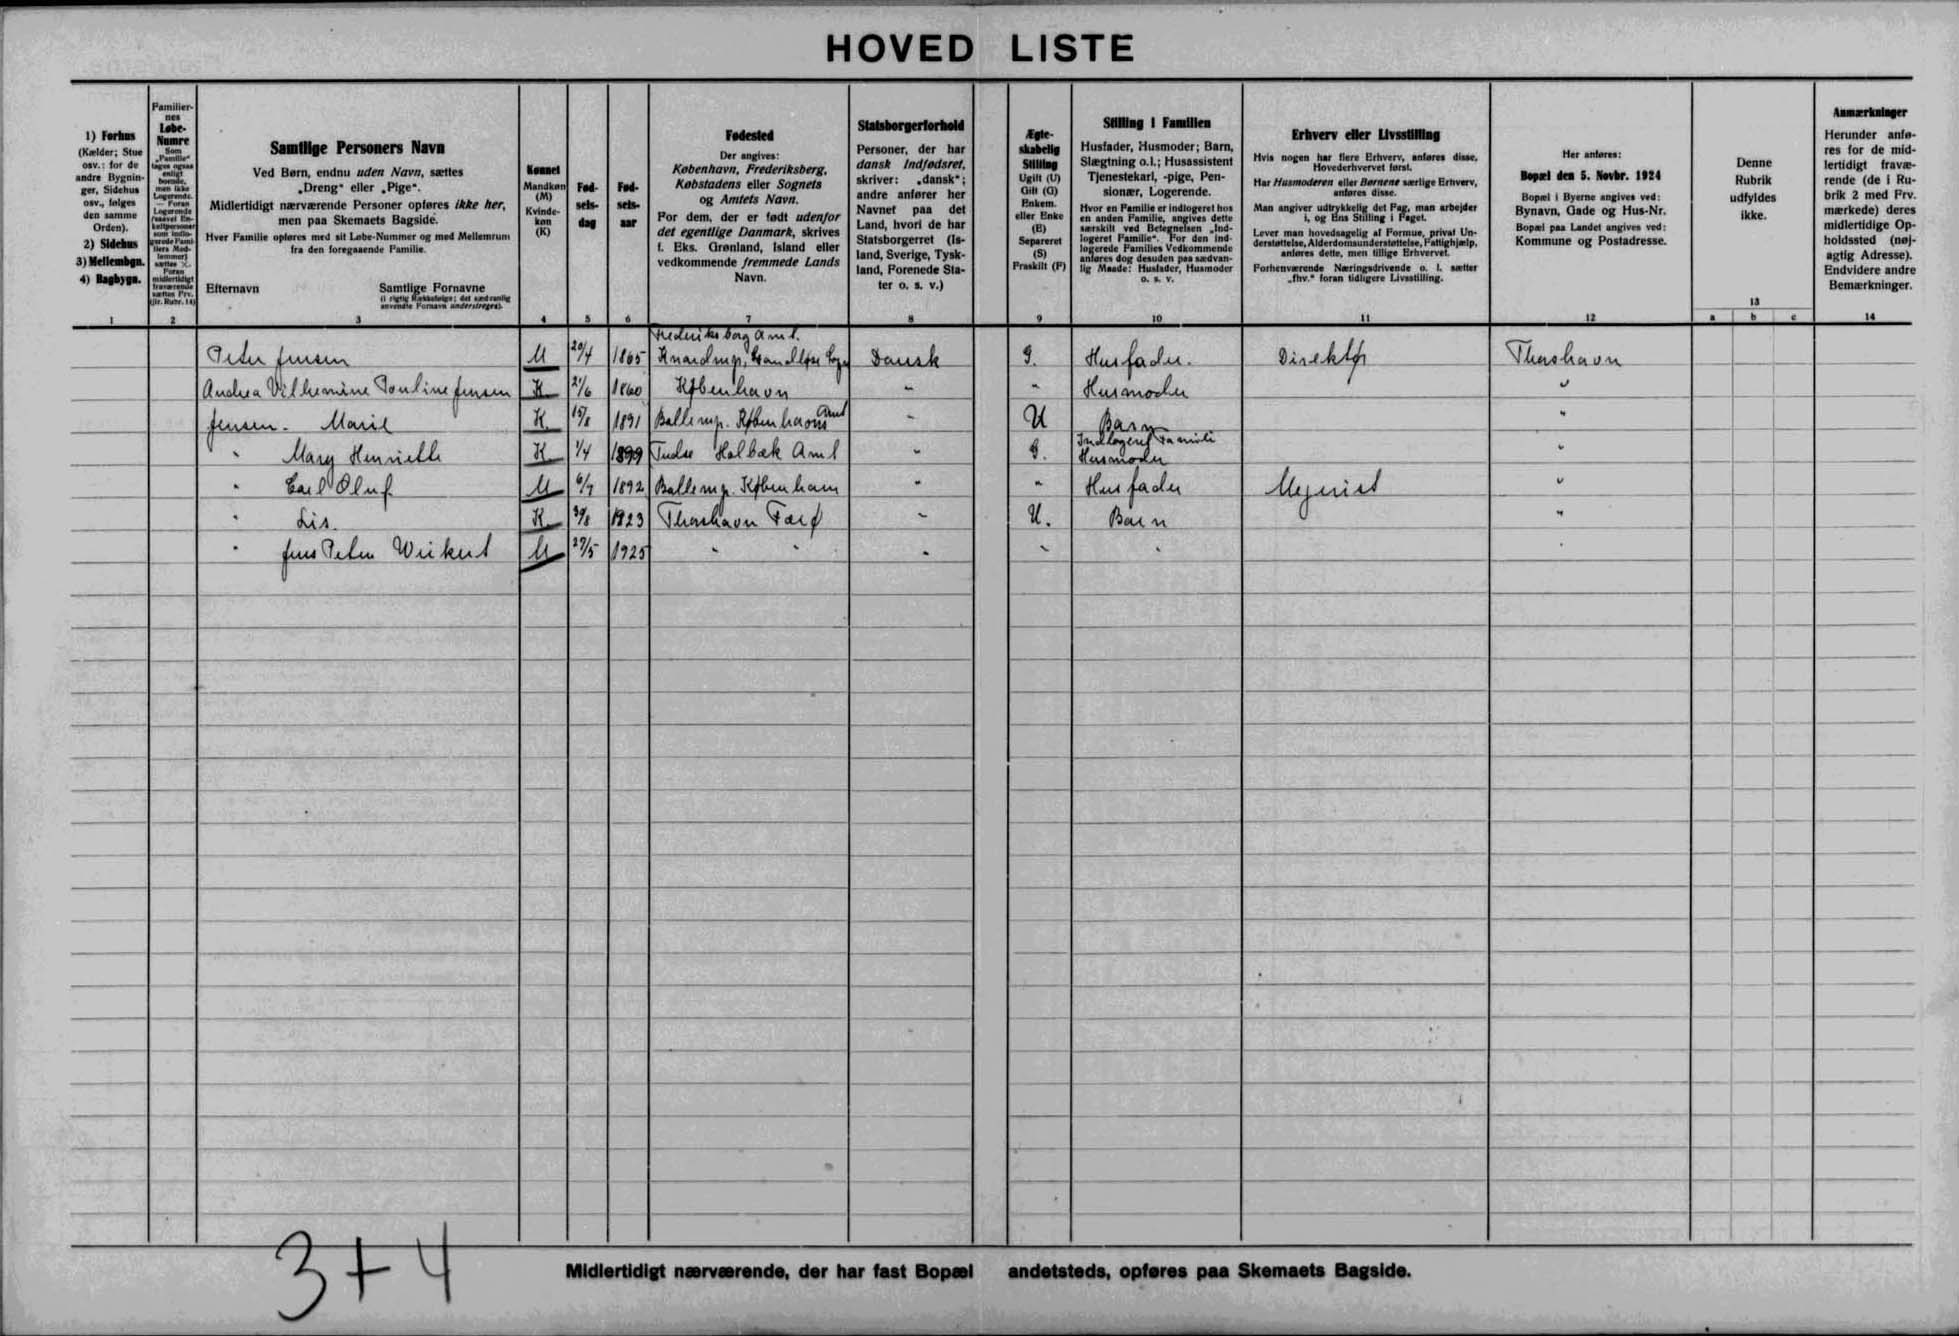 HOVED LISTE
1) Forhus
(Kælder; Stue
osv.: for de
andre Bygnin-
ger, Sidehus
osv., følges
den samme
Orden).
2) Sidehus
3) Mellembgn.
4) Bagbygn.
1
Familier-
nes
Løbe-
Numre
Som
„Familie“
tages ogsaa
enligt
boende,
men ikke
Logerende.
— Foran
Logerende
(saavel En-
keltpersoner
som indlo-
gerede Fami-
liers Med-
lemmer)
sættes ×.
Foran
midlertidigt
fraværende
sættes Frv.
(jfr. Rubr. 14)
2
Samtlige Personers Navn
Ved Børn, endnu uden Navn, sættes
„Dreng“ eller „Pige“.
Midlertidigt nærværende Personer opføres ikke her,
men paa Skemaets Bagside.
Hver Familie opføres med sit Løbe-Nummer og med Mellemrum
fra den foregaaende Familie.
Efternavn Samtlige Fornavne
(i rigtig Rækkefølge; det sædvanlig
anvendte Fornavn understreges).
3
Kønnet
Mandkøn
(M)
Kvinde-
køn
(K)
4
Fød-
sels-
dag
5
Fød-
sels-
aar
6
Fødested
Der angives:
København, Frederiksberg,
Købstadens eller Sognets
og Amtets Navn.
For dem, der er født udenfor
det egentlige Danmark, skrives
f. Eks. Grønland, Island eller
vedkommende fremmede Lands
Navn.
7
Statsborgerforhold
Personer, der har
dansk Indfødsret,
skriver: „dansk“;
andre anfører her
Navnet paa det
Land, hvori de har
Statsborgerret (Is-
land, Sverige, Tysk-
land, Forenede Sta-
ter o. s. v.)
8
Ægte-
skabelig
Stilling
Ugift (U)
Gift (G)
Enkem.
eller Enke
(E)
Separeret
(S)
Fraskilt (F)
9
Stilling i Familien
Husfader, Husmoder; Barn,
Slægtning o.l.; Husassistent
Tjenestekarl, -pige, Pen-
sionær, Logerende.
Hvor en Familie er indlogeret hos
en anden Familie, angives dette
særskilt ved Betegnelsen „Ind-
logeret Familie“. For den ind-
logerede Families Vedkommende
anføres dog desuden paa sædvan-
lig Maade: Husfader, Husmoder
o. s. v.
10
Erhverv eller Livsstilling
Hvis nogen har flere Erhverv, anføres disse,
Hovederhvervet først.
Har Husmoderen eller Børnene særlige Erhverv,
anføres disse.
Man angiver udtrykkelig det Fag, man arbejder
i, og Ens Stilling i Faget.
Lever man hovedsagelig af Formue, privat Un-
derstøttelse, Alderdomsunderstøttelse, Fattighjælp,
anføres dette, men tillige Erhvervet.
Forhenværende Næringsdrivende o. l. sætter
„fhv.“ foran tidligere Livsstilling.
11
Her anføres:
Bopæl den 5. Novbr. 1924
Bopæl i Byerne angives ved:
Bynavn, Gade og Hus-Nr.
Bopæl paa Landet angives ved:
Kommune og Postadresse.
12
Denne
Rubrik
udfyldes
ikke.
13
a b c
Anmærkninger
Herunder anfø-
res for de mid-
lertidigt fravæ-
rende (de i Ru-
brik 2 med Frv.
mærkede) deres
midlertidige Op-
holdssted (nøj-
agtig Adresse).
Endvidere andre
Bemærkninger.
14
Frederiksborg Amt.
Peter Jensen M 20/4 1865 Knardrup, Dansk G. Husfader. Direktør Thorshavn
Andrea Vilhemine Pouline Jensen K 2/6 1860 København " " Husmoder "
Jensen. Marie K. 15/8 1891 Ballerup. Københavns Amt " U Barn "
Indlogeret Familie
" Mary Henriette K 1/4 1899 Tudse Holbæk Amt " G. Husmoder "
" Carl Oluf M 6/7 1892 Ballerup. København " " Husfader Mejerist "
" Lis. K 30/8 1923 Thorshavn Færø " U. Barn "
" Jens Peter Weikert M 27/5 1925 " " " " " "
3+4
Midlertidigt nærværende, der har fast Bopæl andetsteds, opføres paa Skemaets Bagside.